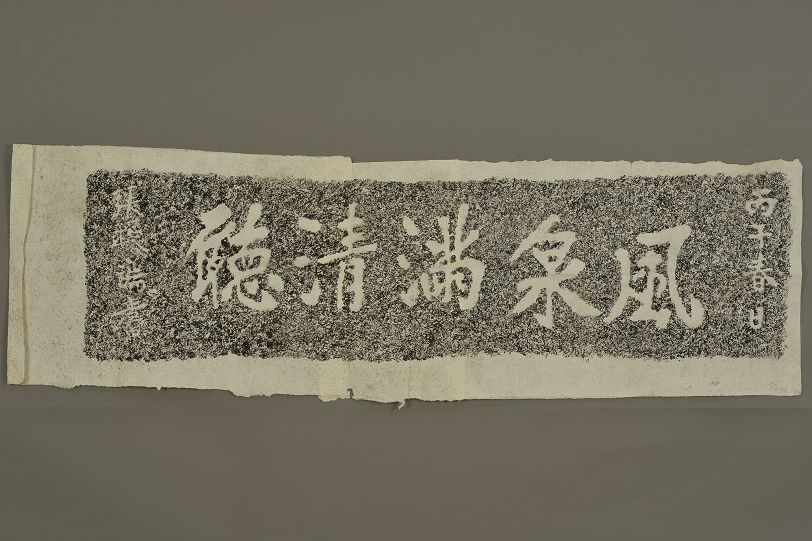 丙子春日
風泉滿清聽
書